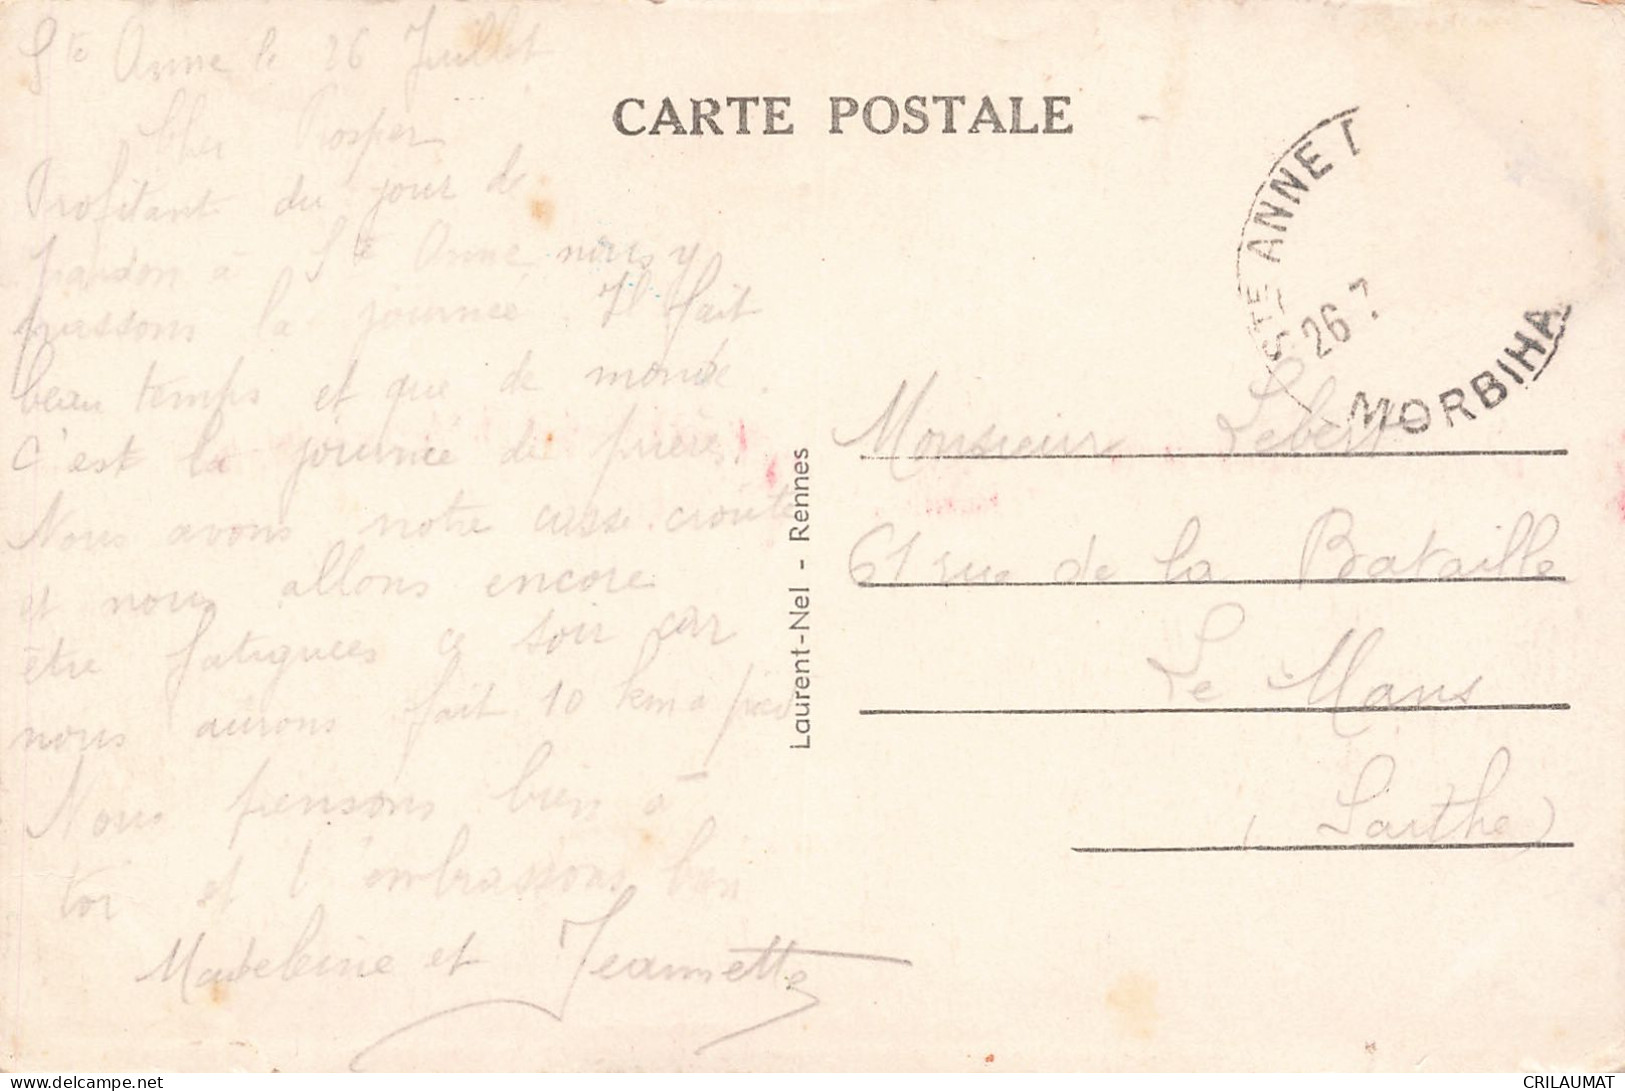 Ste Anne le 26 Juillet
Cher Prosper
Profitant du jour de
pardon à Ste Anne nous y
passons la journée. Il fait
beau temps et que de monde.
C'est la journée de prières!
Nous avons notre casse-croûte
et nous allons encore
être fatiguées ce soir car
nous aurons fait 10 km à pied
Nous pensons bien à
toi et t'embrassons bien
Madeleine et Jeannette
CARTE POSTALE
Laurent-Nel - Rennes
STE ANNE
26 7
MORBIHA
Monsieur Lebert
61 rue de la Bataille
Le Mans
(Sarthe)
CRILAUMAT